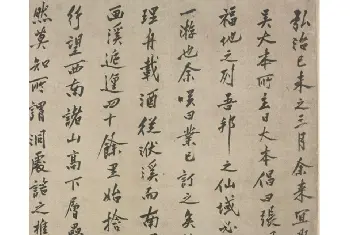 弘治己未之三月余来宜
吳大本所主日大本倡曰張
福地之列吾邦之仙域必
一遊也余咲曰業已訂之矣
理舟載酒從洑溪而南
画溪迤邐四十餘里始捨
行望西南諸山高下層
然莫知所謂洞處詰之推